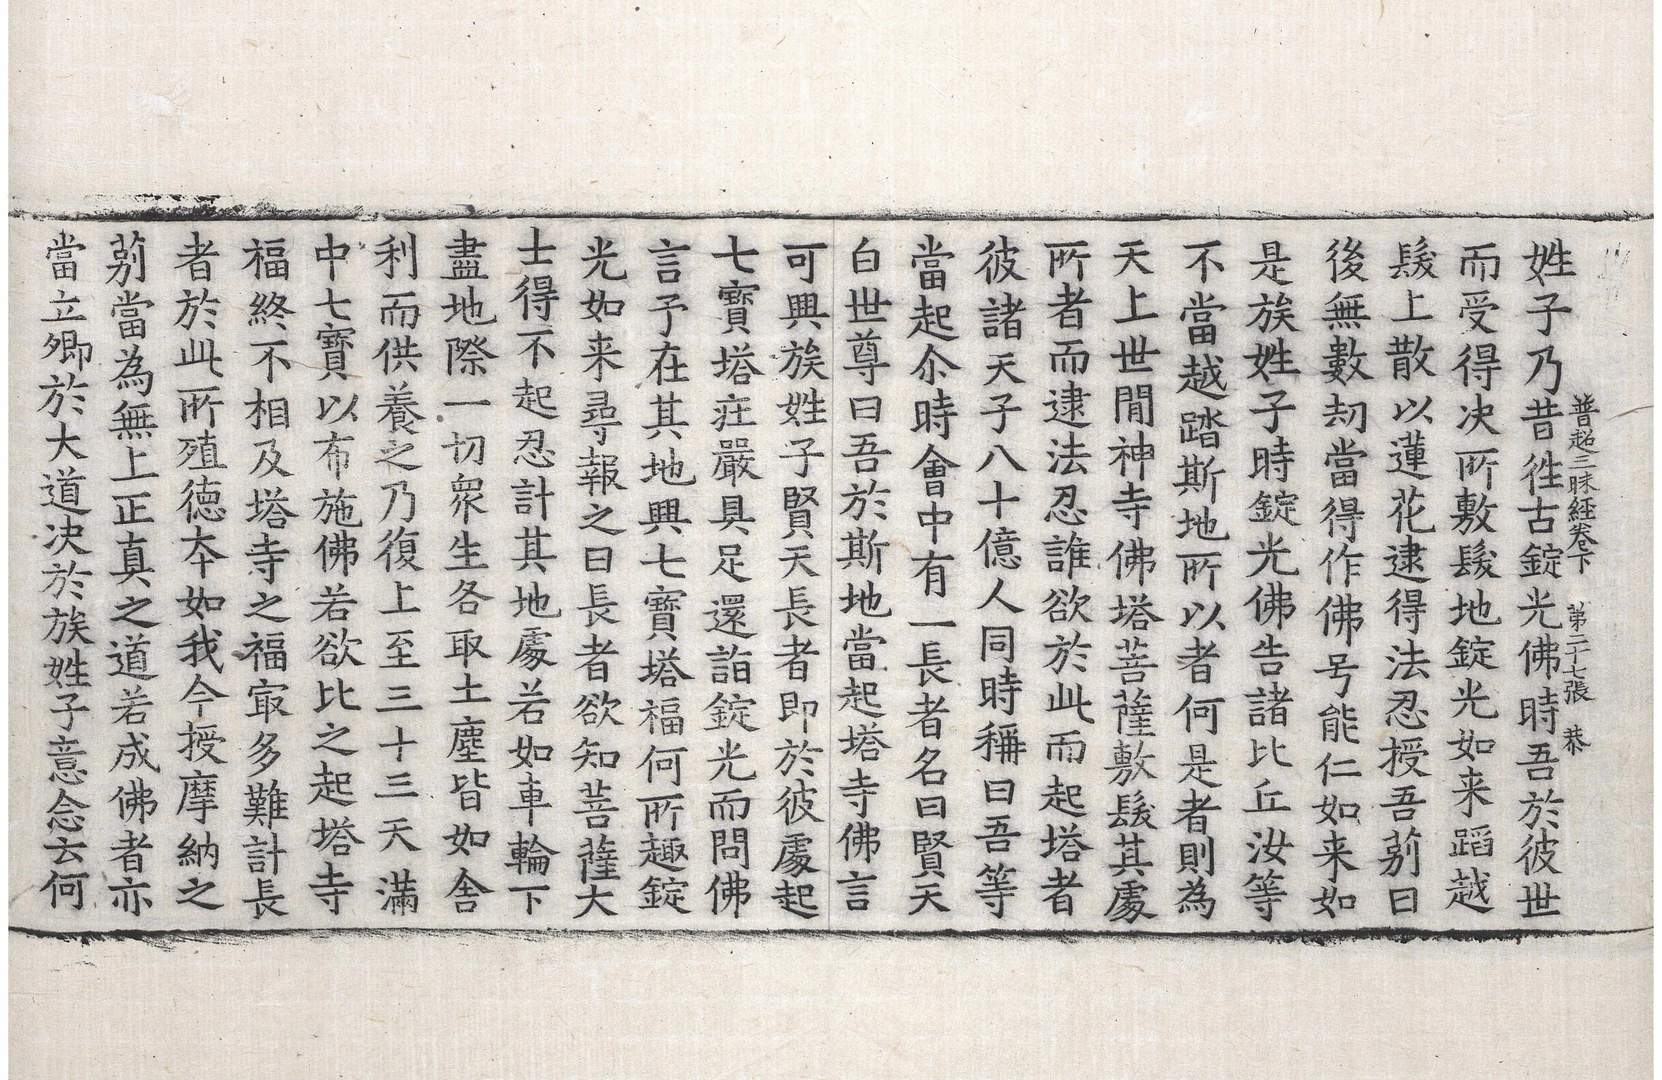 普超三昧經卷下 第二十七張 恭
姓子乃昔徃古錠光佛時吾於彼世
而受得决所敷髮地錠光如来蹈越
髮上散以蓮花逮得法忍授吾莂曰
後無數劫當得作佛号能仁如来如
是族姓子時錠光佛告諸比丘汝等
不當越蹈斯地所以者何是者則為
天上世閒神寺佛塔菩薩敷髮其處
所者而逮法忍誰欲於此而起塔者
彼諸天子八十億人同時稱曰吾等
當起尒時會中有一長者名曰賢天
白世尊曰吾於斯地當起塔寺佛言
可興族姓子賢天長者即於彼處起
七寶塔莊嚴具足還詣錠光而問佛
言予在其地興七寶塔福何所趣錠
光如来尋報之曰長者欲知菩薩大
士得不起忍計其地處若如車輪下
盡地際一切衆生各取土塵皆如舍
利而供養之乃復上至三十三天滿
中七寶以布施佛若欲比之起塔寺
福終不相及塔寺之福㝡多難計長
者於此所殖德夲如我今授摩納之
莂當為無上正真之道若成佛者亦
當立卿於大道决於族姓子意念云何